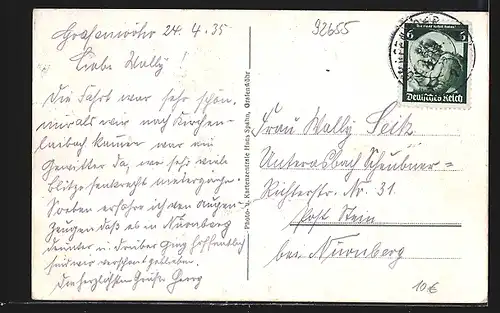 Grafenwöhr 24.4.35
Liebe Wally!
Die Fahrt war sehr schön,
nur als wir nach Kirchen-
laibach kamen war ein
Gewitter da, wo sehr viele
Blitze senkrecht niedergingen.
Soeben erfahre ich von Augen-
Zeugen daß es in Nürnberg
drunter u. drüber ging hoffentlich
seid wir verschont geblieben.
Die herzlichsten Grüße Georg
Photo- u. Kartenzentrale Hans Spahn, Grafenwöhr
92655
6
Deutsches Reich
Frau Wally Seitz
Unterasbach Scheubner-
Richterstr. Nr. 31
Post Stein
bei Nürnberg
10€